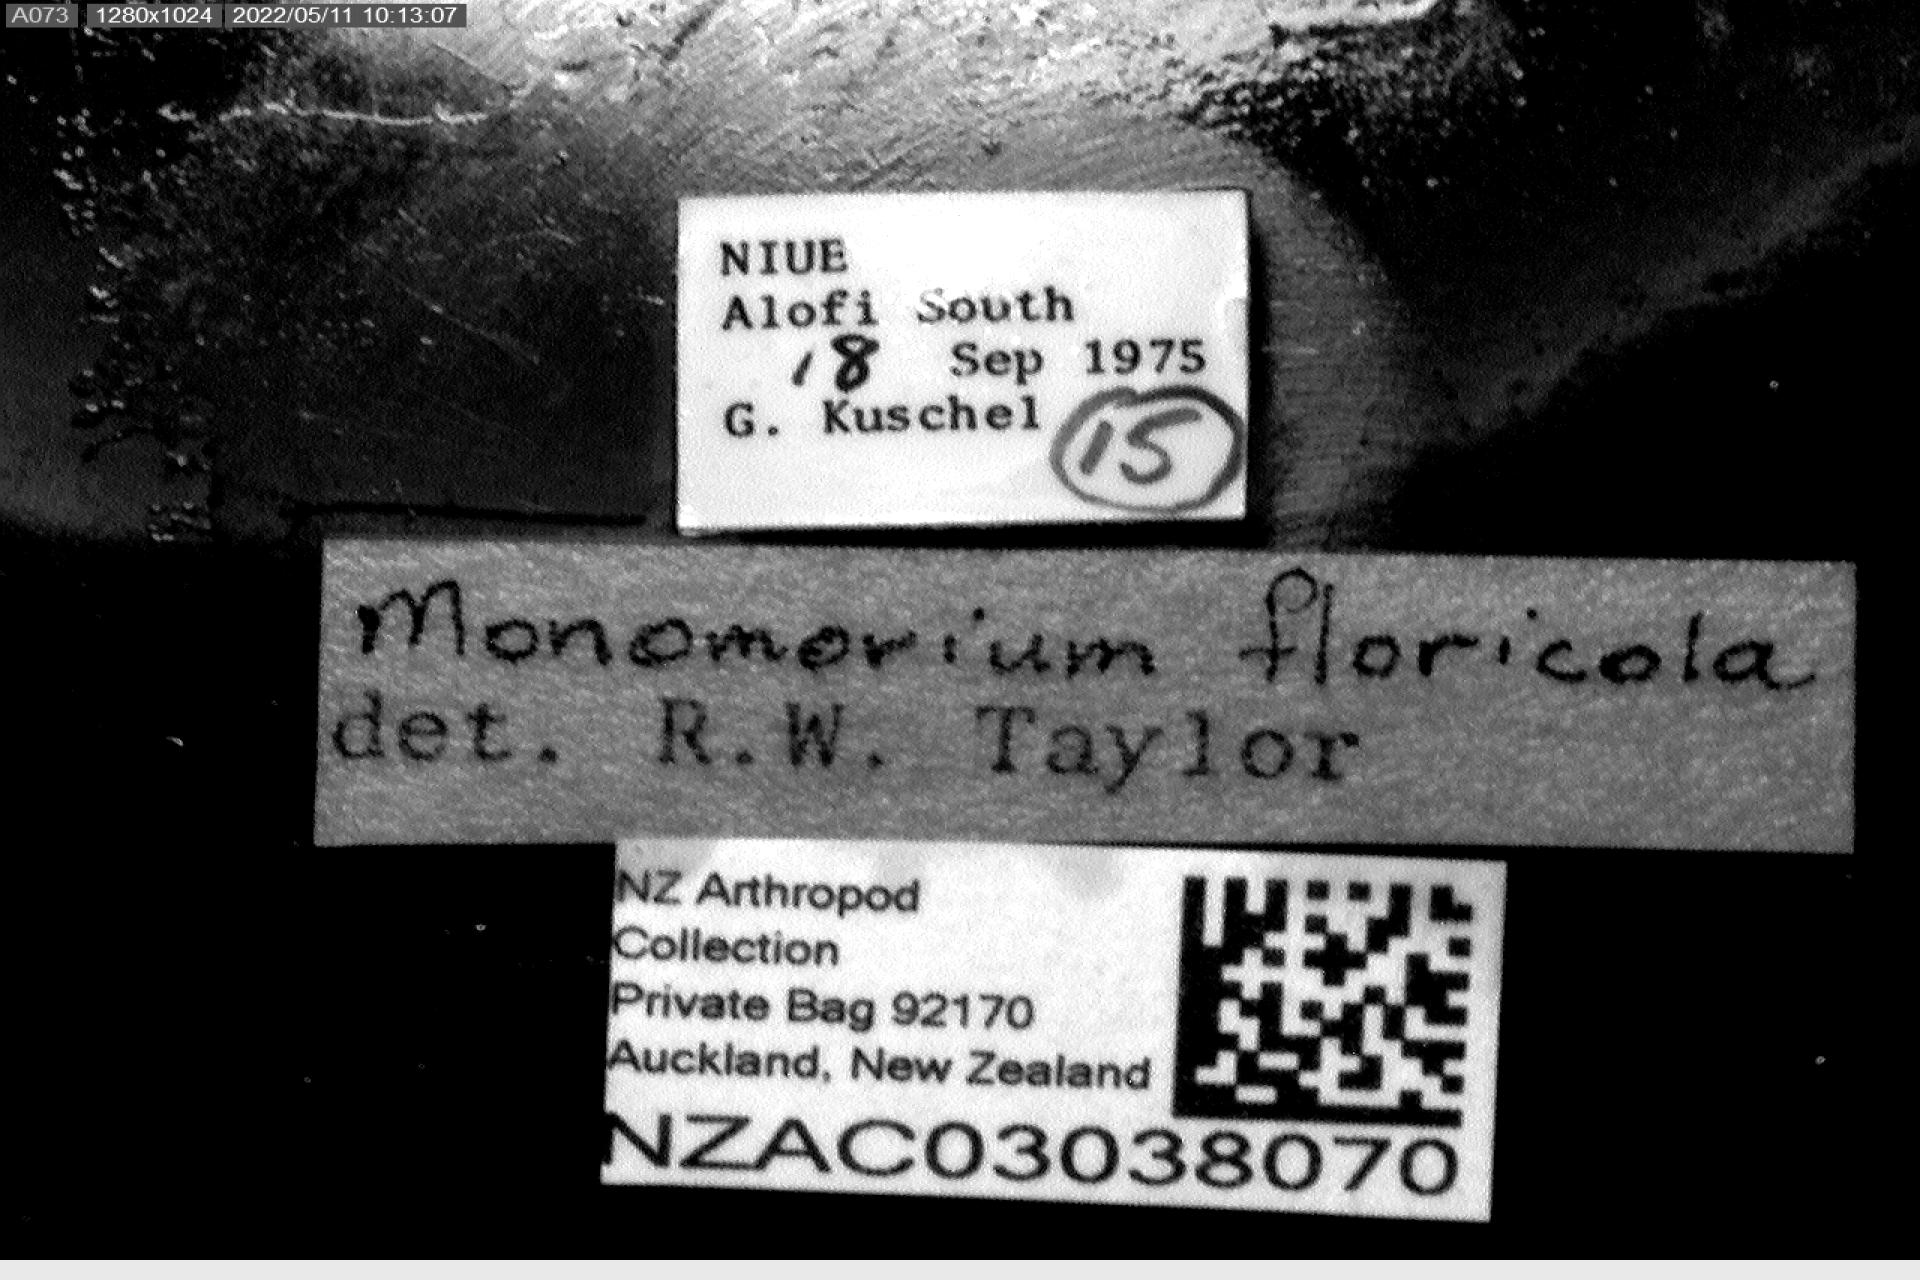 A073 1280x1024 2022/05/11 10:13:07
NIUE
Alofi South
18 Sep 1975
G. Kuschel 15
Monomorium floricola
det. R.W. Taylor
NZ Arthropod
Collection
Private Bag 92170
Auckland, New Zealand
NZAC03038070